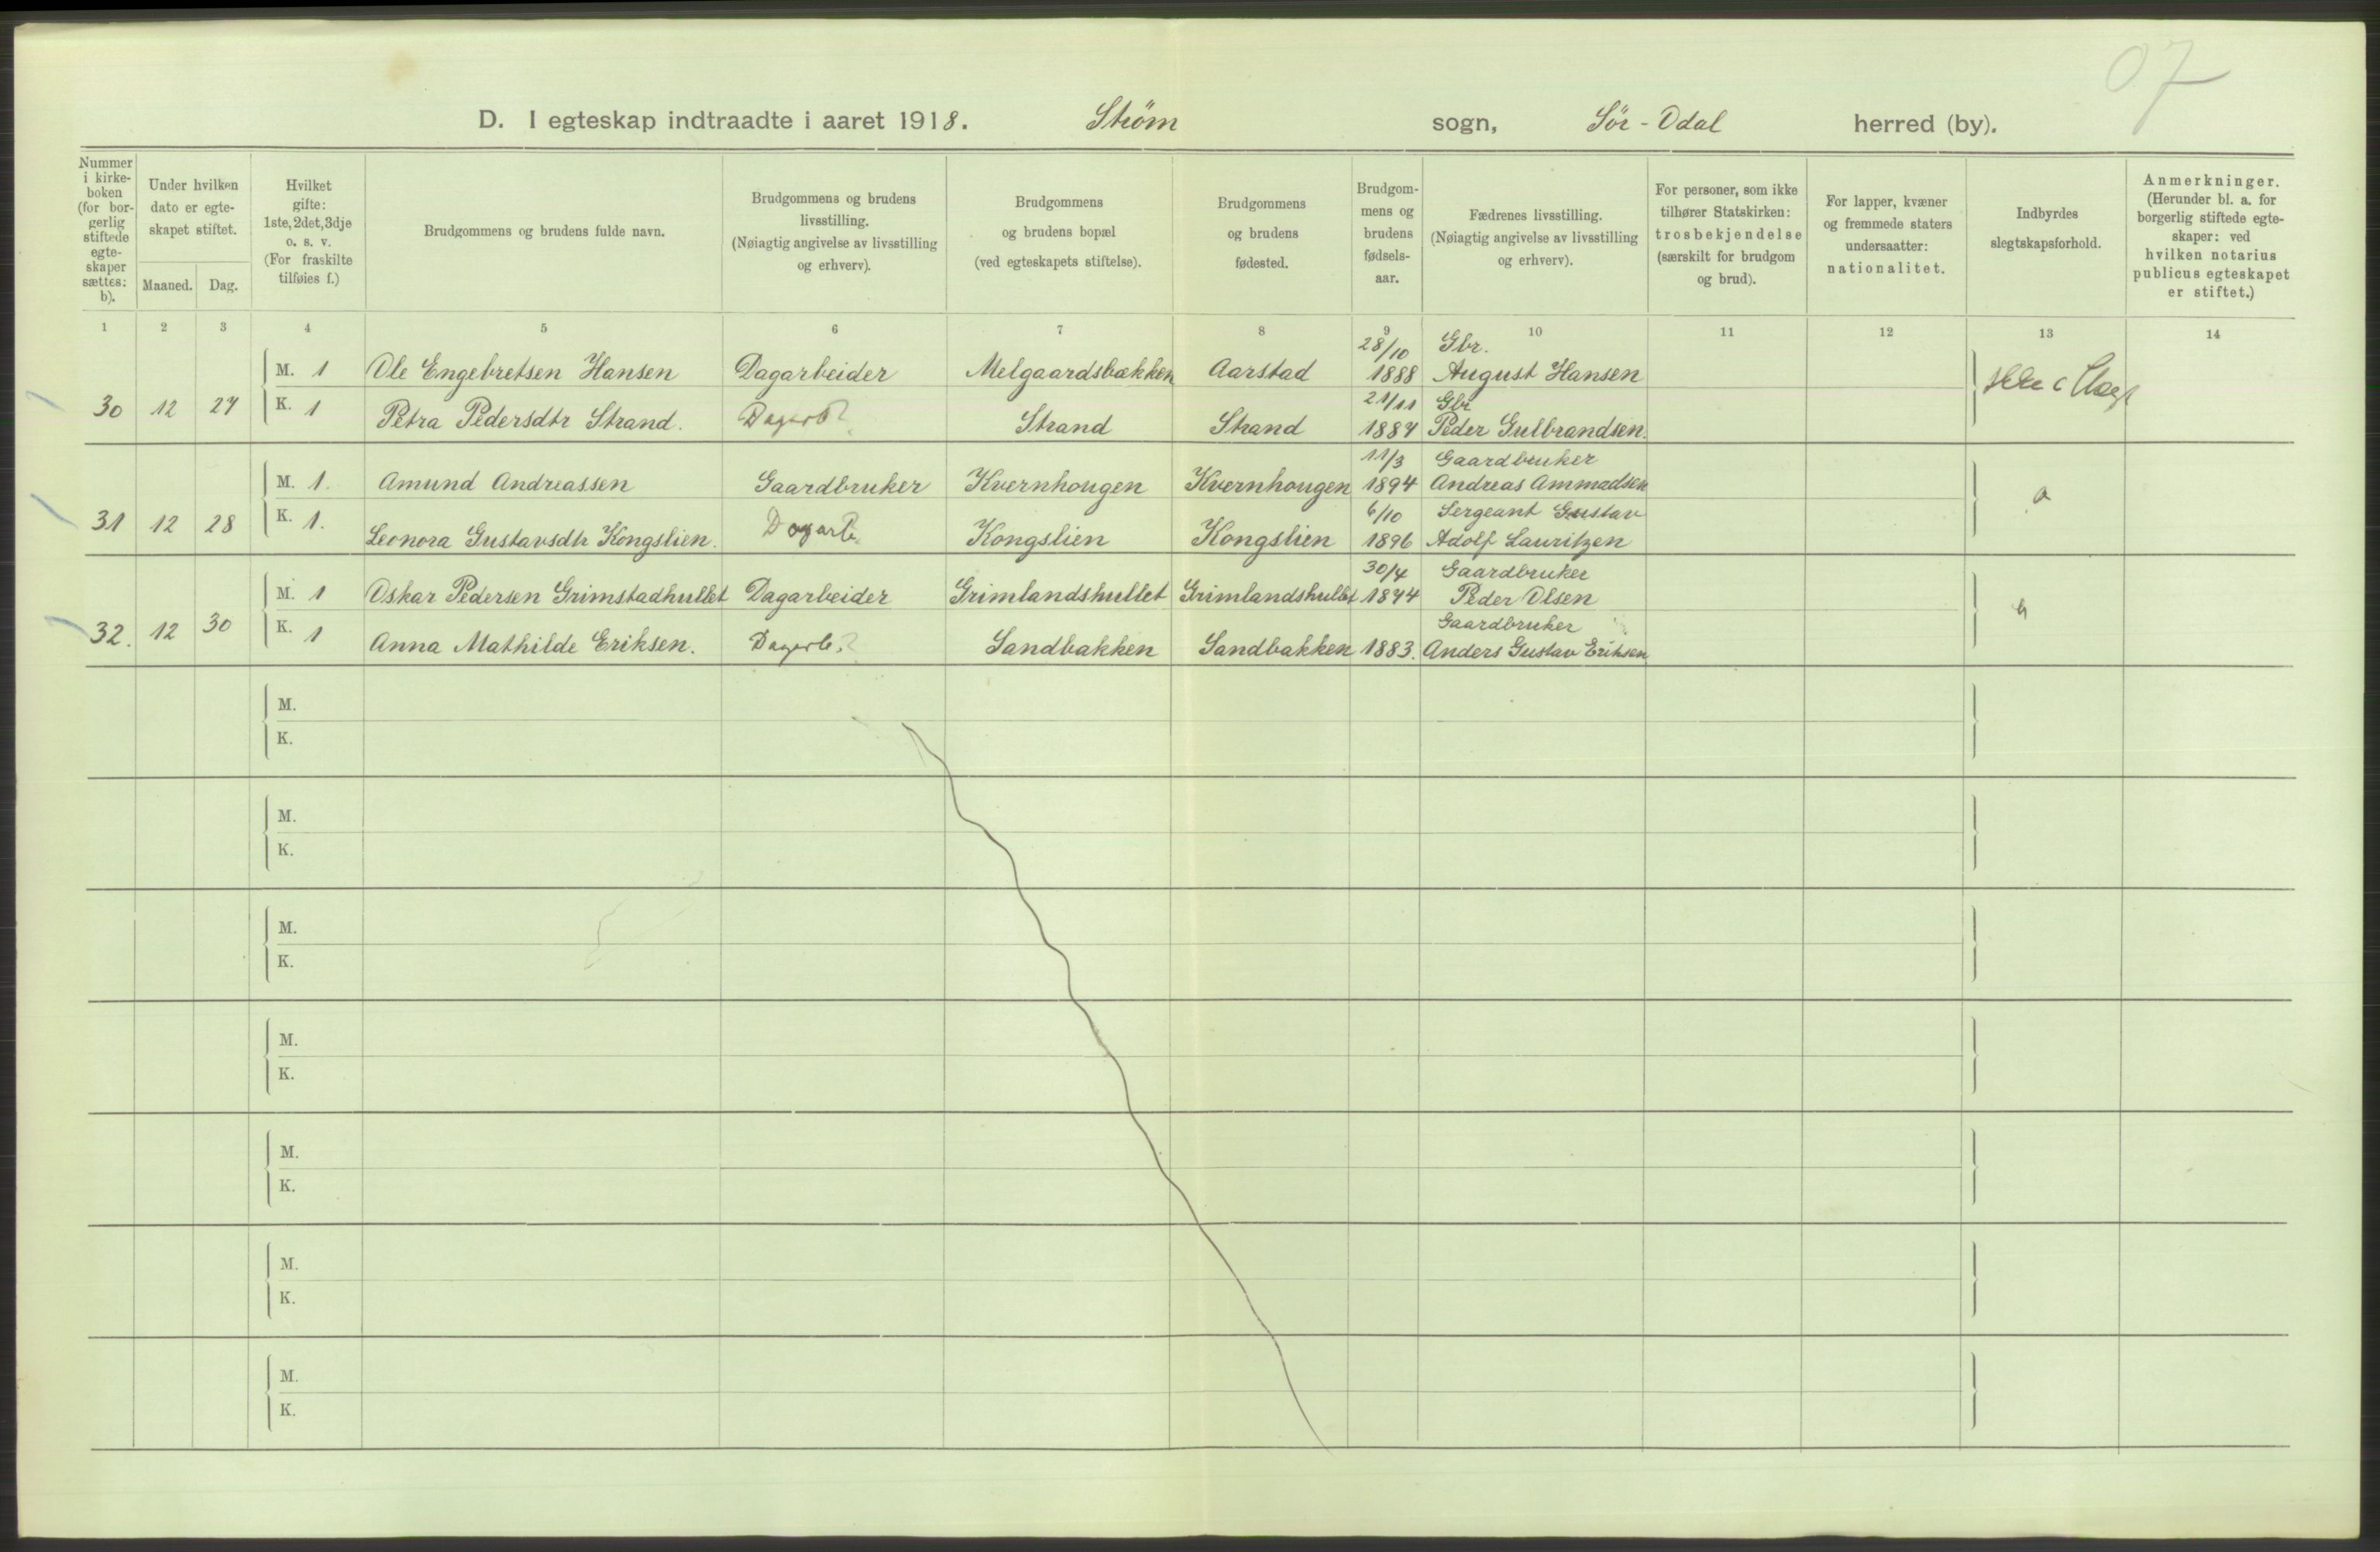 07
D. I egteskap indtraadte i aaret 1918. Strøm sogn, Sör-Odal herred (by).
Nummer i kirkeboken (for borgerlig stiftede egteskaper sættes: b).
Under hvilken dato er egteskapet stiftet.
Maaned. Dag.
Hvilket gifte: 1ste, 2det, 3dje o. s. v. (For fraskilte tilføies f.)
Brudgommens og brudens fulde navn.
Brudgommens og brudens livsstilling. (Nøiagtig angivelse av livsstilling og erhverv).
Brudgommens og brudens bopæl (ved egteskapets stiftelse).
Brudgommens og brudens fødested.
Brudgommens og brudens fødselsaar.
Fædrenes livsstilling. (Nøiagtig angivelse av livsstilling og erhverv).
For personer, som ikke tilhører Statskirken: trosbekjendelse (særskilt for brudgom og brud).
For lapper, kvæner og fremmede staters undersaatter: nationalitet.
Indbyrdes slegtskapsforhold.
Anmerkninger. (Herunder bl. a. for borgerlig stiftede egteskaper: ved hvilken notarius publicus egteskapet er stiftet.)
1 2 3 4 5 6 7 8 9 10 11 12 13 14
28/10 Gbr.
M. 1 Ole Engebretsen Hansen Dagarbeider Melgaardsbækken Aarstad 1888 August Hansen
30 12 27 K. 1 21/11 Gbr
Petra Pedersdtr Strand. Dagarb? Strand Strand 1887 Peder Gulbrandsen.
11/3 Gaardbruker
M. 1. Amund Andreassen Gaardbruker Kvernhougen Kvernhougen 1894 Andreas Ammadsen
31 12 28 K. 1. 6/10 Sergeant Gustav
Leonora Gustavsdtr Kongslien. Dagarb. Kongslien Kongslien 1896 Adolf Lauritzen
30/4 Gaardbruker
M. 1 Oskar Pedersen Grimstadhullet Dagarbeider Grimlandshullet Grimlandshullet 1874 Peder Olsen
32. 12 30 K. 1 Gaardbruker
Anna Mathilde Eriksen. Dagarb.? Sandbakken Sandbakken 1883. Anders Gustav Eriksen
M.
K.
M.
K.
M.
K.
M.
K.
M.
K.
M.
K.
M.
K.